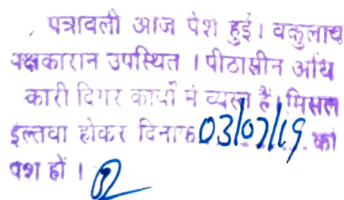 पत्रावली आज पेश हुई। वकुलाय
पक्षकारान उपस्थित । पीठासीन अधि
कारी दिगर कार्यो मे व्यस्त है, मिसल
इल्तवा होकर दिनांक 03/07/19 को
पेश हों ।